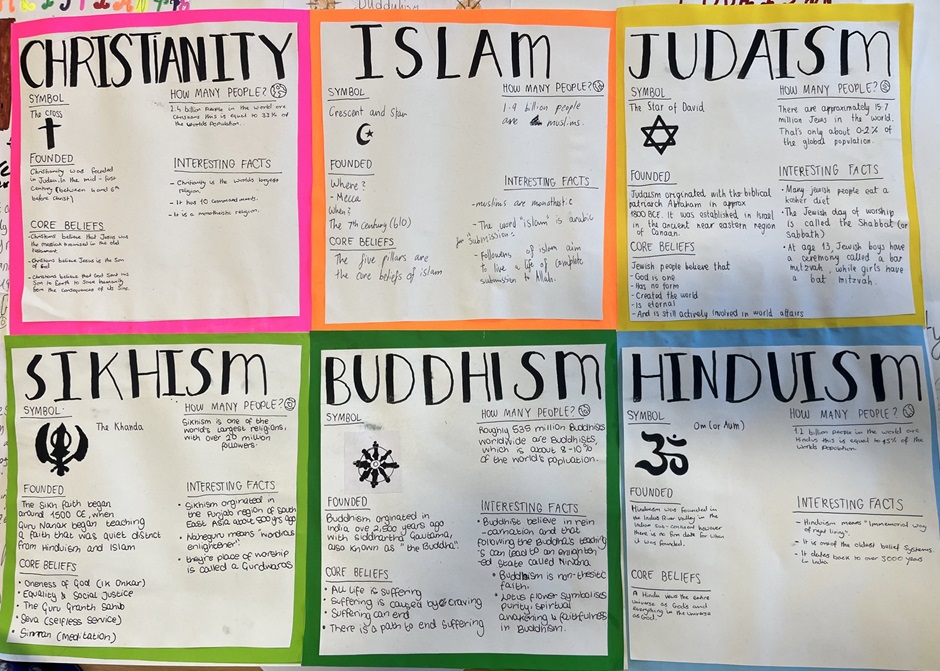 CHRISTIANITY
SYMBOL
The Cross
HOW MANY PEOPLE?
2.4 billion people in the world are
Christians this is equal to 33% of
the Worlds Population.
FOUNDED
Christianity was founded
in Judaia in the mid-first
Century (between 4 and 6th
before Christ)
INTERESTING FACTS
- Christianity is the worlds largest
religion.
- It has 10 commandments.
- It is a monotheistic religion.
CORE BELIEFS
- Christians believe that Jesus was
the messiah promised in the old
testament
- Christians believe Jesus is the Son
of God
- Christians believe that God Sent his
Son to Earth to Save humanity
from the consequences of its Sins.
ISLAM
SYMBOL
Crescent and Star
HOW MANY PEOPLE?
1.9 billion people
are muslims.
FOUNDED
Where?
- Mecca
When?
The 7th century (610)
INTERESTING FACTS
- muslims are monothestic
- The word "islam" is arabic
for "submission".
- Followers of islam aim
to live a life of complete
submission to Allah.
CORE BELIEFS
The five pillars are
the core beliefs of islam
JUDAISM
SYMBOL
The Star of David
HOW MANY PEOPLE?
There are approximately 15.7
million Jews in the world.
That's only about 0.2%
of the global population.
FOUNDED
Judaism originated with the biblical
patriarch Abraham in approx
1800 BCE. It was established in Israel,
in the ancient near eastern region
of Canaan.
INTERESTING FACTS
• Many jewish people eat a
kosher diet
• The Jewish day of worship
is called the Shabbat (or
Sabbath)
• At age 13, Jewish boys have
a ceremony called a bar
mitzvah, while girls have
a bat mitzvah.
CORE BELIEFS
Jewish people believe that
- God is one
- Has no form
- Created the world
- is eternal
- And is still actively involved in world affairs
SIKHISM
SYMBOL:
The Khanda
HOW MANY PEOPLE?
Sikhism is one of the
world's largest religions,
with over 20 million
followers.
FOUNDED
The Sikh faith began
around 1500 CE, when
Guru Nanak began teaching
a faith that was quiet distict
from Hinduism and Islam
INTERESTING FACTS
• Sikhism orginated in
the Punjab region of south
East Asia about 500yrs ago
• Waheguru means "wondrous
enlightner"
• they're place of worship
is called a Gurdwaras
CORE BELIEFS
• Oneness of God (Ik Onkar)
• Equality & Social Justice
• The Guru Granth Sahib
• Seva (selfless service)
• Simran (Meditation)
BUDDHISM
SYMBOL
HOW MANY PEOPLE?
Roughly 535 million Buddhiss
worldwide are Buddhists,
which is about 8-10%
of the world's poplation.
FOUNDED
Buddhism orginated in
India over 2,500 years ago
with Siddhartha Gautama,
also known as "the Buddha".
INTERESTING FACTS
• Buddhist believe in rein
- carnation and that
following the Buddha's teaching
's can lead to an enlighten-
ed state called Nirvana
• Buddhism is non-thestic
faith.
• Lotus flower symbolises
purity, spiritual
awakening & faithfulness
in Buddhism.
CORE BELIEFS
• All Life is suffering
• Suffering is caused by craving
• Suffering can end
• There is a path to end suffering
HINDUISM
SYMBOL
Om (or Aum)
HOW MANY PEOPLE?
1.2 billion people in the world are
Hindus this is equal to 15% of the
Worlds Population.
FOUNDED
Hinduism was founded in
the Indus River Valley in the
Indian Sub-Continent however
there is no firm date for when
it was founded.
INTERESTING FACTS
- Hinduism means "immemorial way
of right living".
- It is one of the oldest belief Systems.
- It dates back to over 5000 years
in India
CORE BELIEFS
A Hindu views the entire
universe as Gods and
everything in the universe
as God.